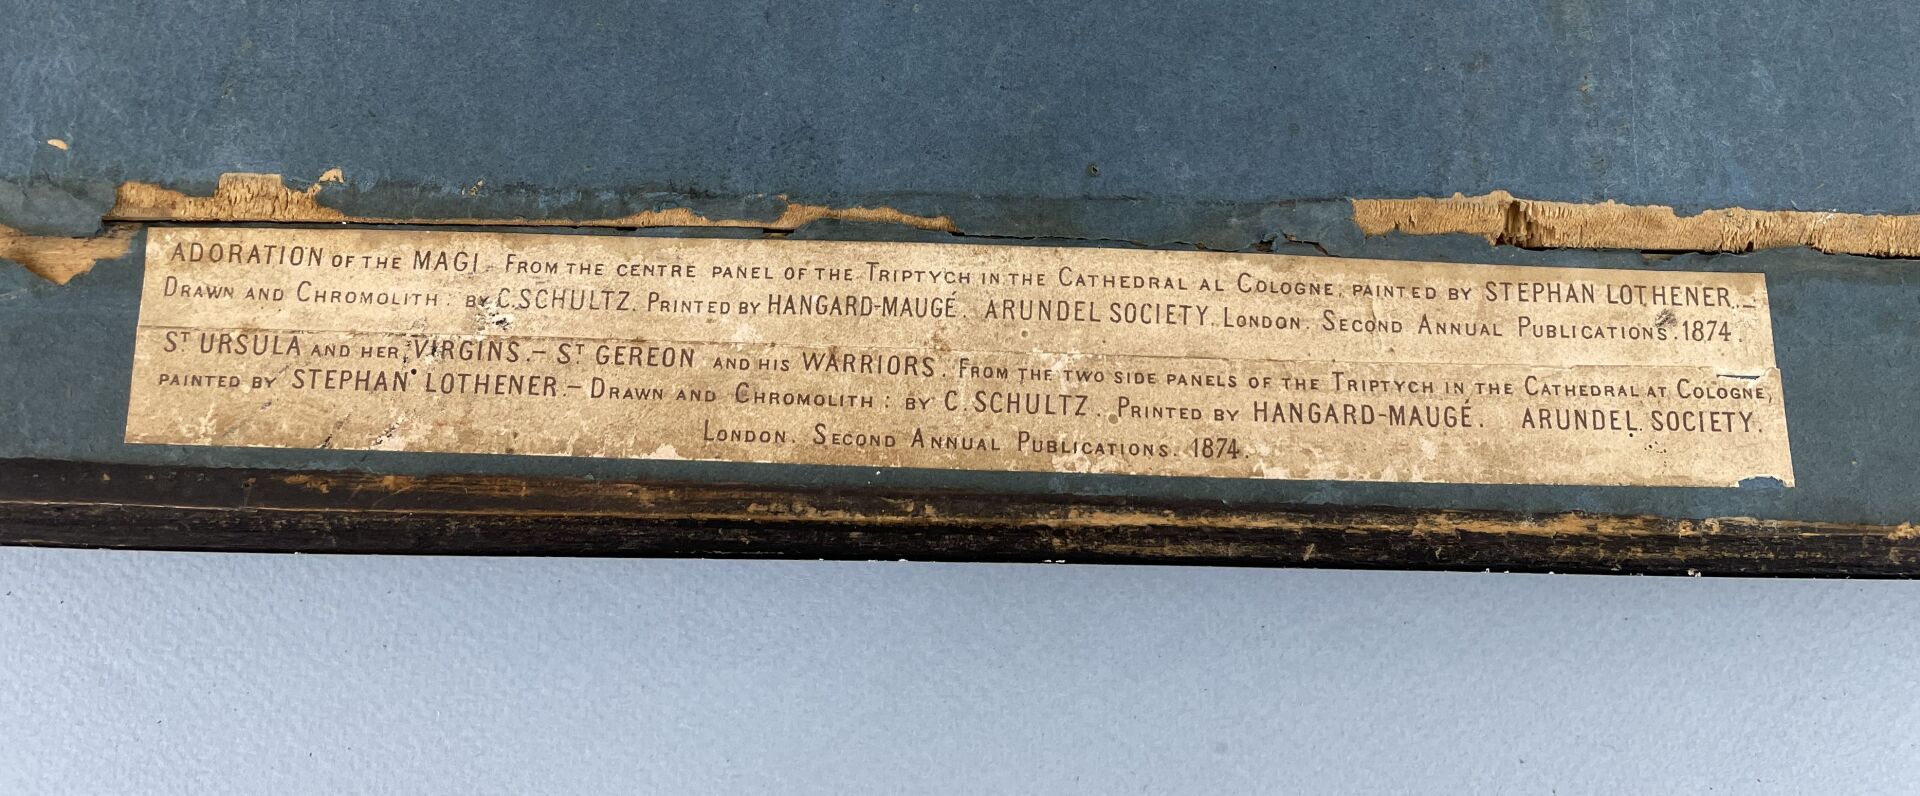 ADORATION OF THE MAGI. FROM THE CENTRE PANEL OF THE TRIPTYCH IN THE CATHEDRAL AL COLOGNE, PAINTED BY STEPHAN LOTHENER.—
DRAWN AND CHROMOLITH: BY C. SCHULTZ. PRINTED BY HANGARD-MAUGÉ. ARUNDEL SOCIETY. LONDON. SECOND ANNUAL PUBLICATIONS. 1874.
ST URSULA AND HER VIRGINS.— ST GEREON AND HIS WARRIORS. FROM THE TWO SIDE PANELS OF THE TRIPTYCH IN THE CATHEDRAL AT COLOGNE,
PAINTED BY STEPHAN LOTHENER.— DRAWN AND CHROMOLITH: BY C. SCHULTZ. PRINTED BY HANGARD-MAUGÉ. ARUNDEL SOCIETY.
LONDON. SECOND ANNUAL PUBLICATIONS. 1874.